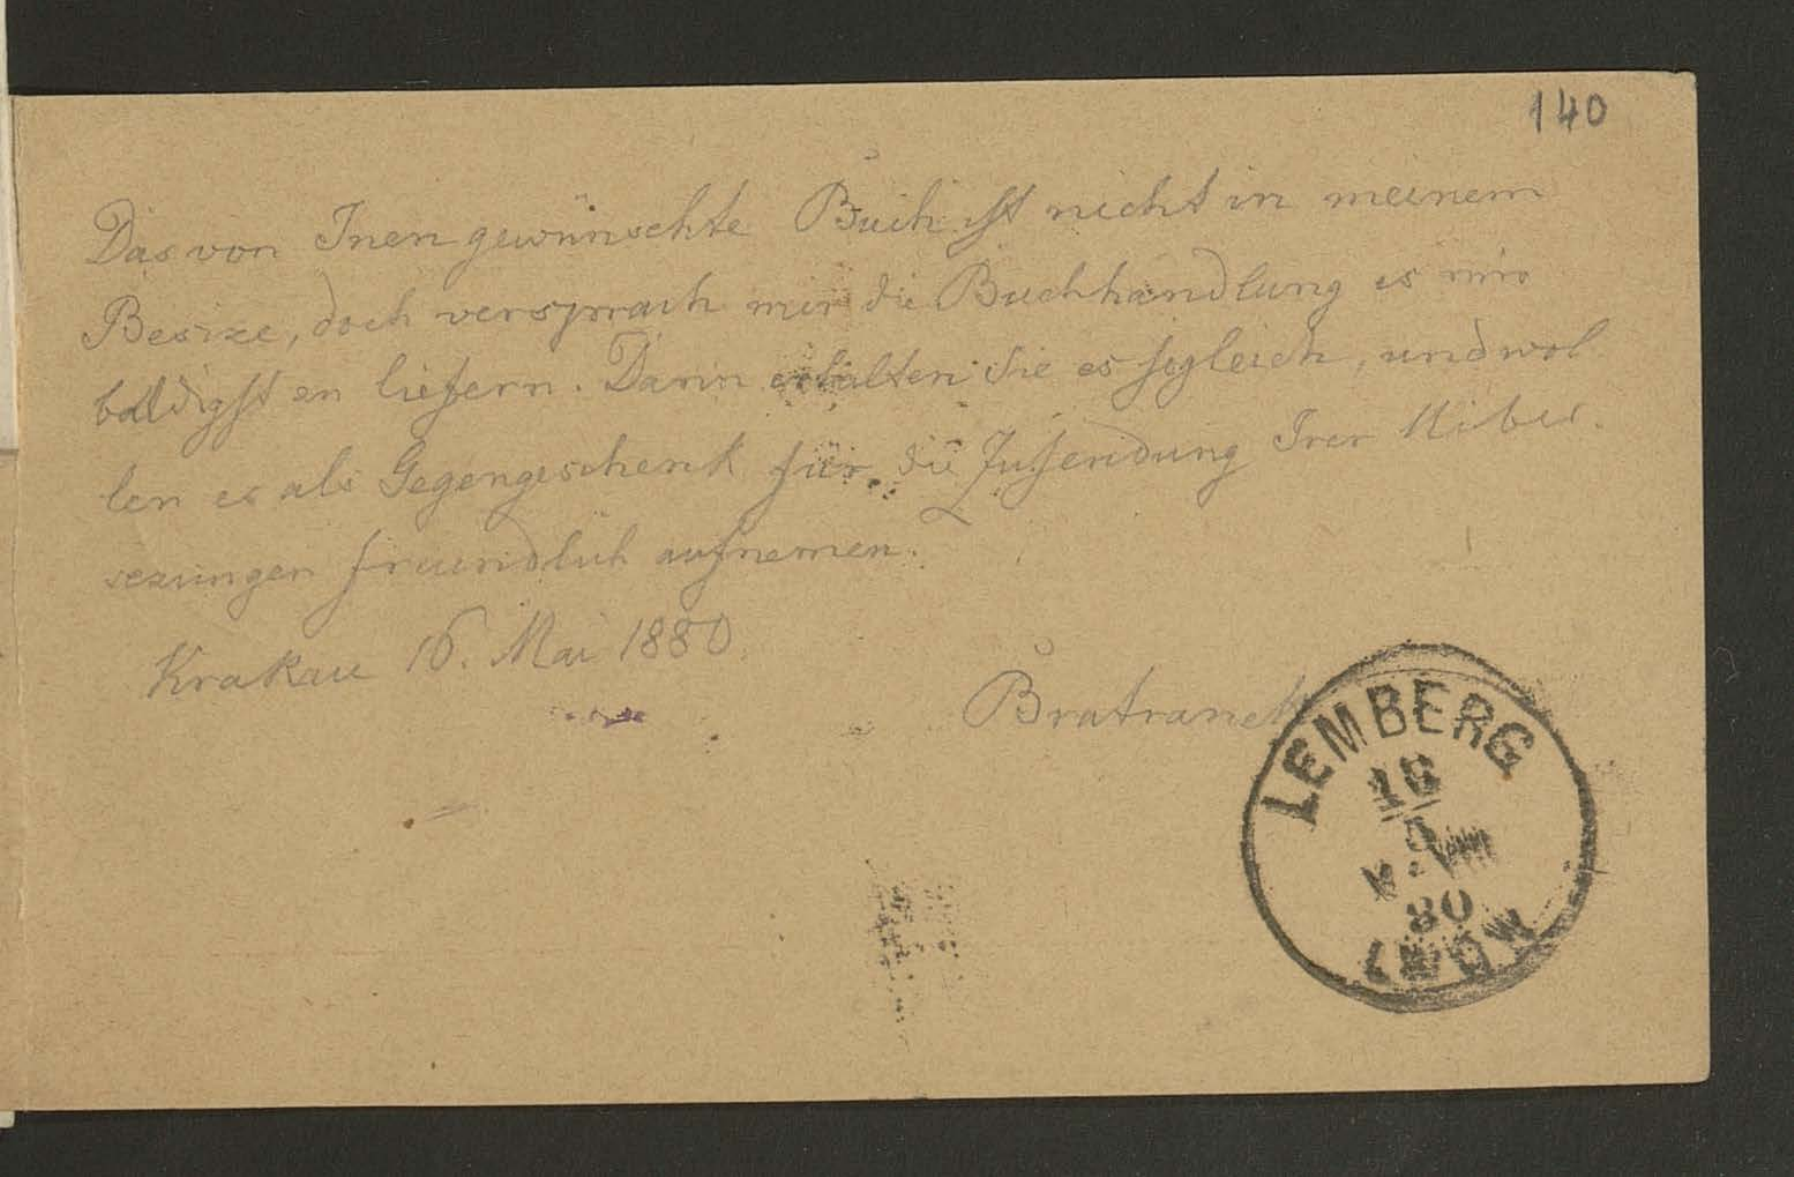 140
Das von Inen gewünschte Buch ist nicht in meinem
Besize, doch versprach mir die Buchhandlung es mir
baldigst en liefern. Dann erhalten Sie es sogleich, und wol
len es als Gegengeschenk für die Zusendung Irer
sezungen freundlich aufnemen.
Krakau 16. Mai 1880
Bratranek
LEMBERG
16
5
80
LWÓW